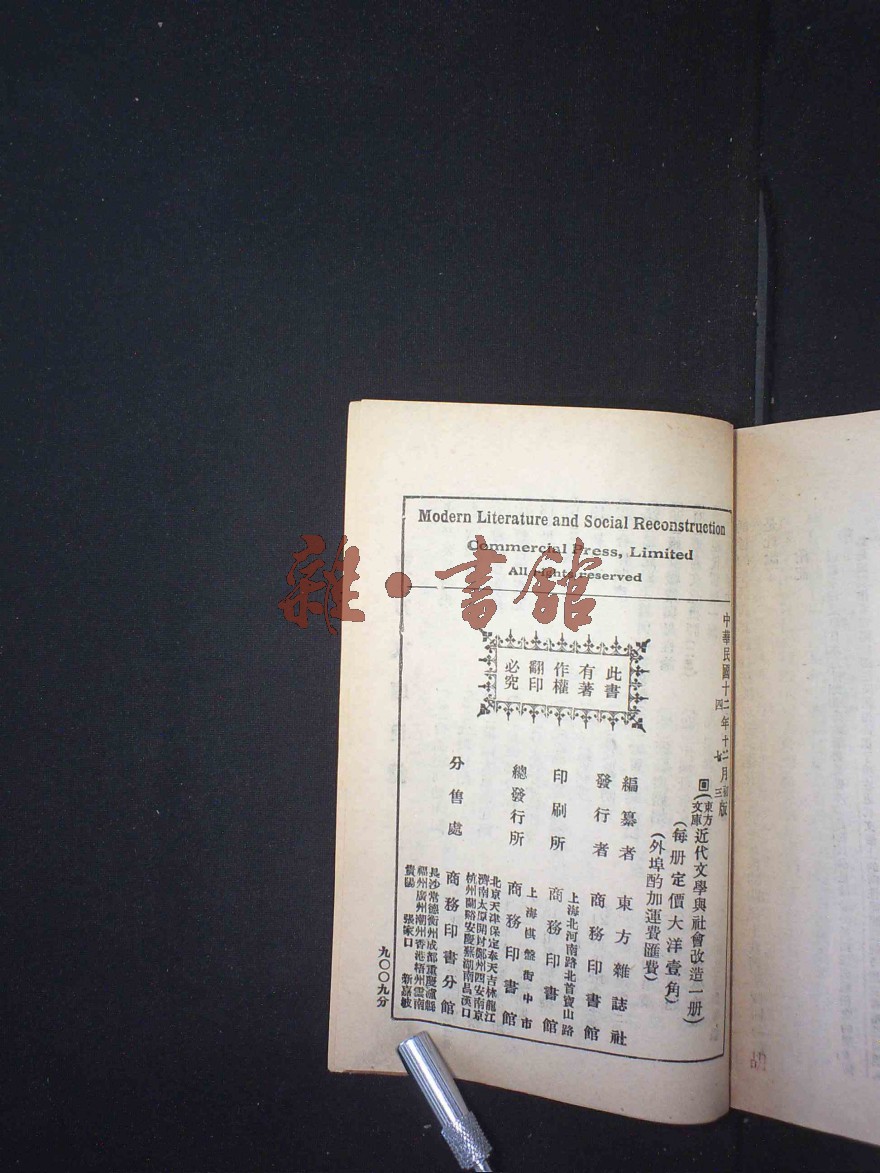 Modern Literature and Social Reconstruction
Commercial Press, Limited
All rights reserved
此書
有著
作權
翻印
必究
中華民國十二年十二月初版
四 七 三
(東方文庫)近代文學與社會改造一册)
(每册定價大洋壹角)
(外埠酌加運費匯費)
編纂者 東方雜誌社
發行者 商務印書館
上海北河南路北首寶山路
印刷所 商務印書館
上海棋盤街中市
總發行所 商務印書館
北京天津保定奉天吉林龍江
濟南太原開封鄭州西安南京
杭州蘭谿安慶蕪湖南昌漢口
分售處 商務印書分館
長沙常德衡州成都重慶瀘縣
福州廣州潮州香港梧州雲南
貴陽 張家口 新嘉坡
九〇〇九分
雜·書館